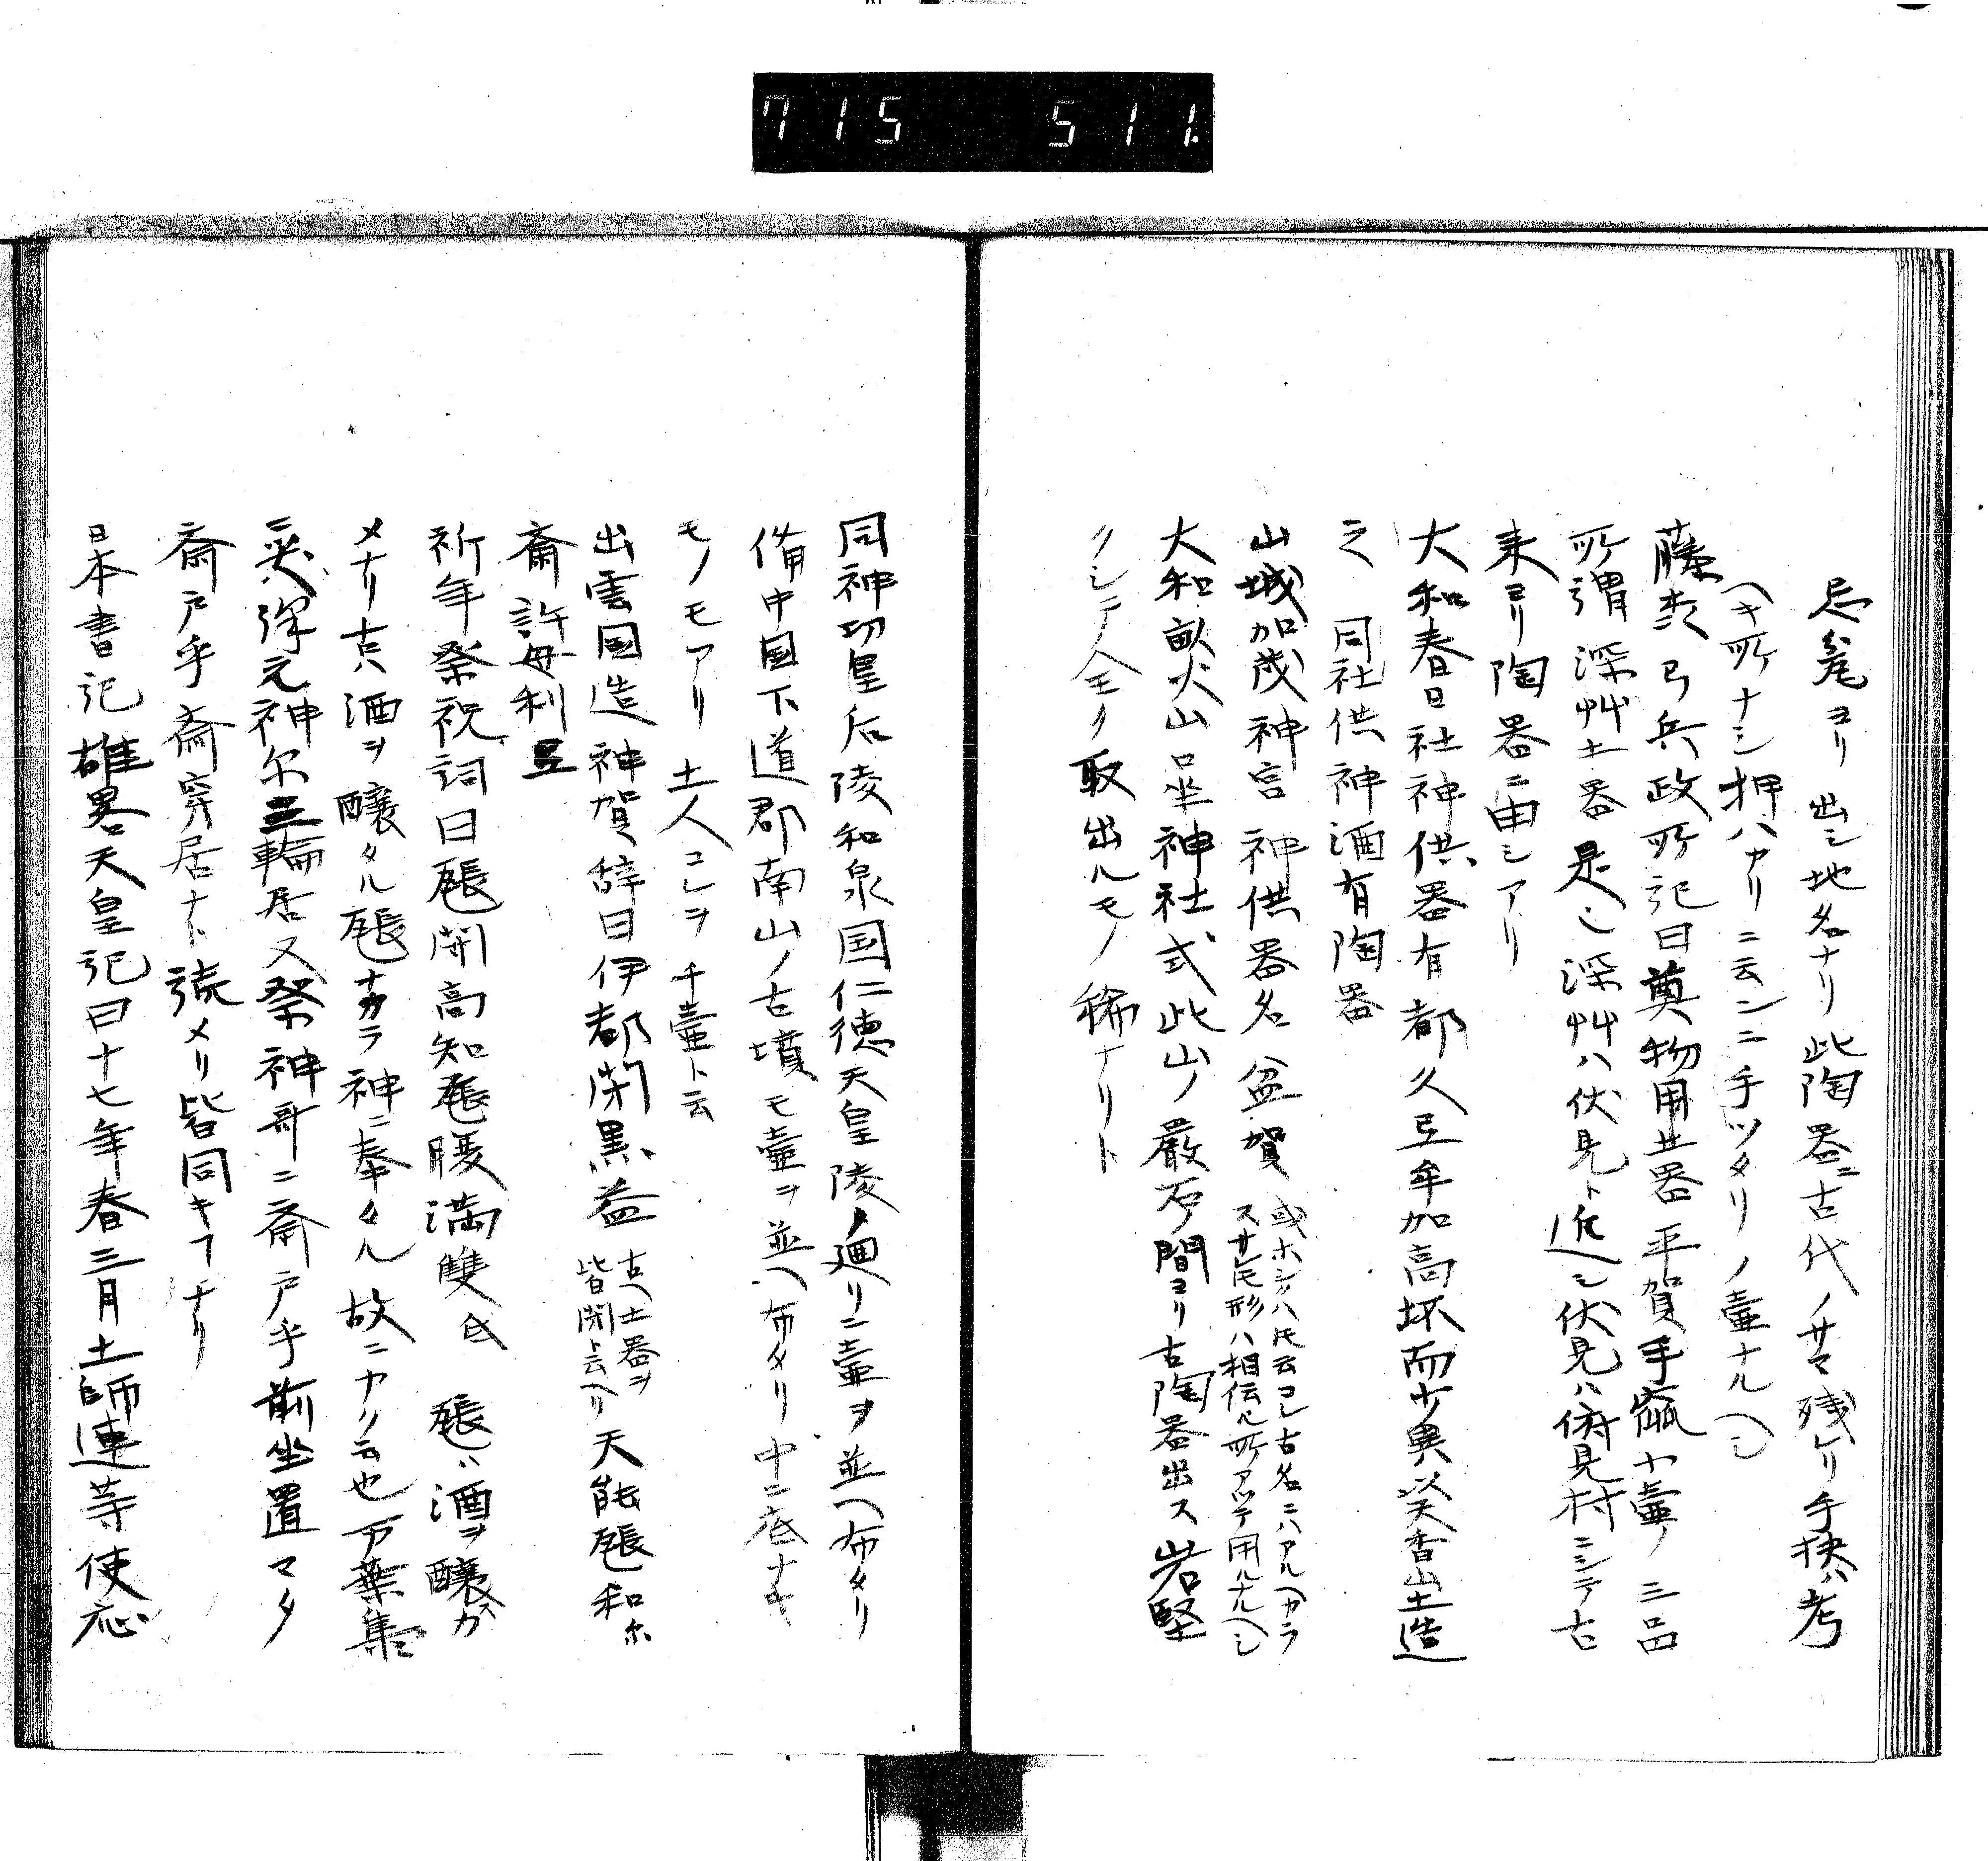 715 511.
忌瓮ヨリ出シ地名ナリ此陶器ニ古代ノサマ残レリ手抉ハ考
ヘキ所ナシ押ハカリニ云ンニ手ツクリノ壷ナルヘシ
藤 弓兵政所記曰奠物用土器平賀手瓫小壷ノ三品
所謂深艸土器是也深艸ハ伏見ト近シ伏見ハ俯見村ニシテ古
来ヨリ陶器ニ由シアリ
大和春日社神供器有都久弖牟加高坏而少異以天香山土造
之 同社供神酒有陶器
山城加茂神宮神供器名盆賀
或ホシカハ氏云コレ古名ニハアルヘカラ
スサレ𪜈形ハ相伝ル所アツテ用ルナルヘシ
大和畝火山口坐神社式此山ノ巌石ノ間ヨリ古陶器出ス岩堅
クシテ全ク取出ルモノ稀ナリト
同神功皇后陵和泉国仁徳天皇陵ノ廻リニ壷ヲ並ヘ布タリ
備中国下道郡南山ノ古墳モ壷ヲ並ヘ布タリ中ニ底ナキ
モノモアリ土人コレヲ千壷ト云
出雲国造神賀辞曰伊都閇黒益
古ヘ土器ヲ
皆閇ト云ヘリ
天能𤭖和尓
斎許母利弖
祈年祭祝詞曰𤭖閇高知𤭖腹満雙弖 𤭖ハ酒ヲ醸サンカ
メナリ古ハ酒ヲ醸タル𤭖ナカラ神ニ奉タル故ニカク云也万葉集ニ
哭沢元神尓三輪居又祭神哥ニ斎戸乎前坐置マタ
斎戸乎斎穿居ナト読メリ皆同キコナリ
日本書記雄畧天皇記曰十七年春三月土師連等使応